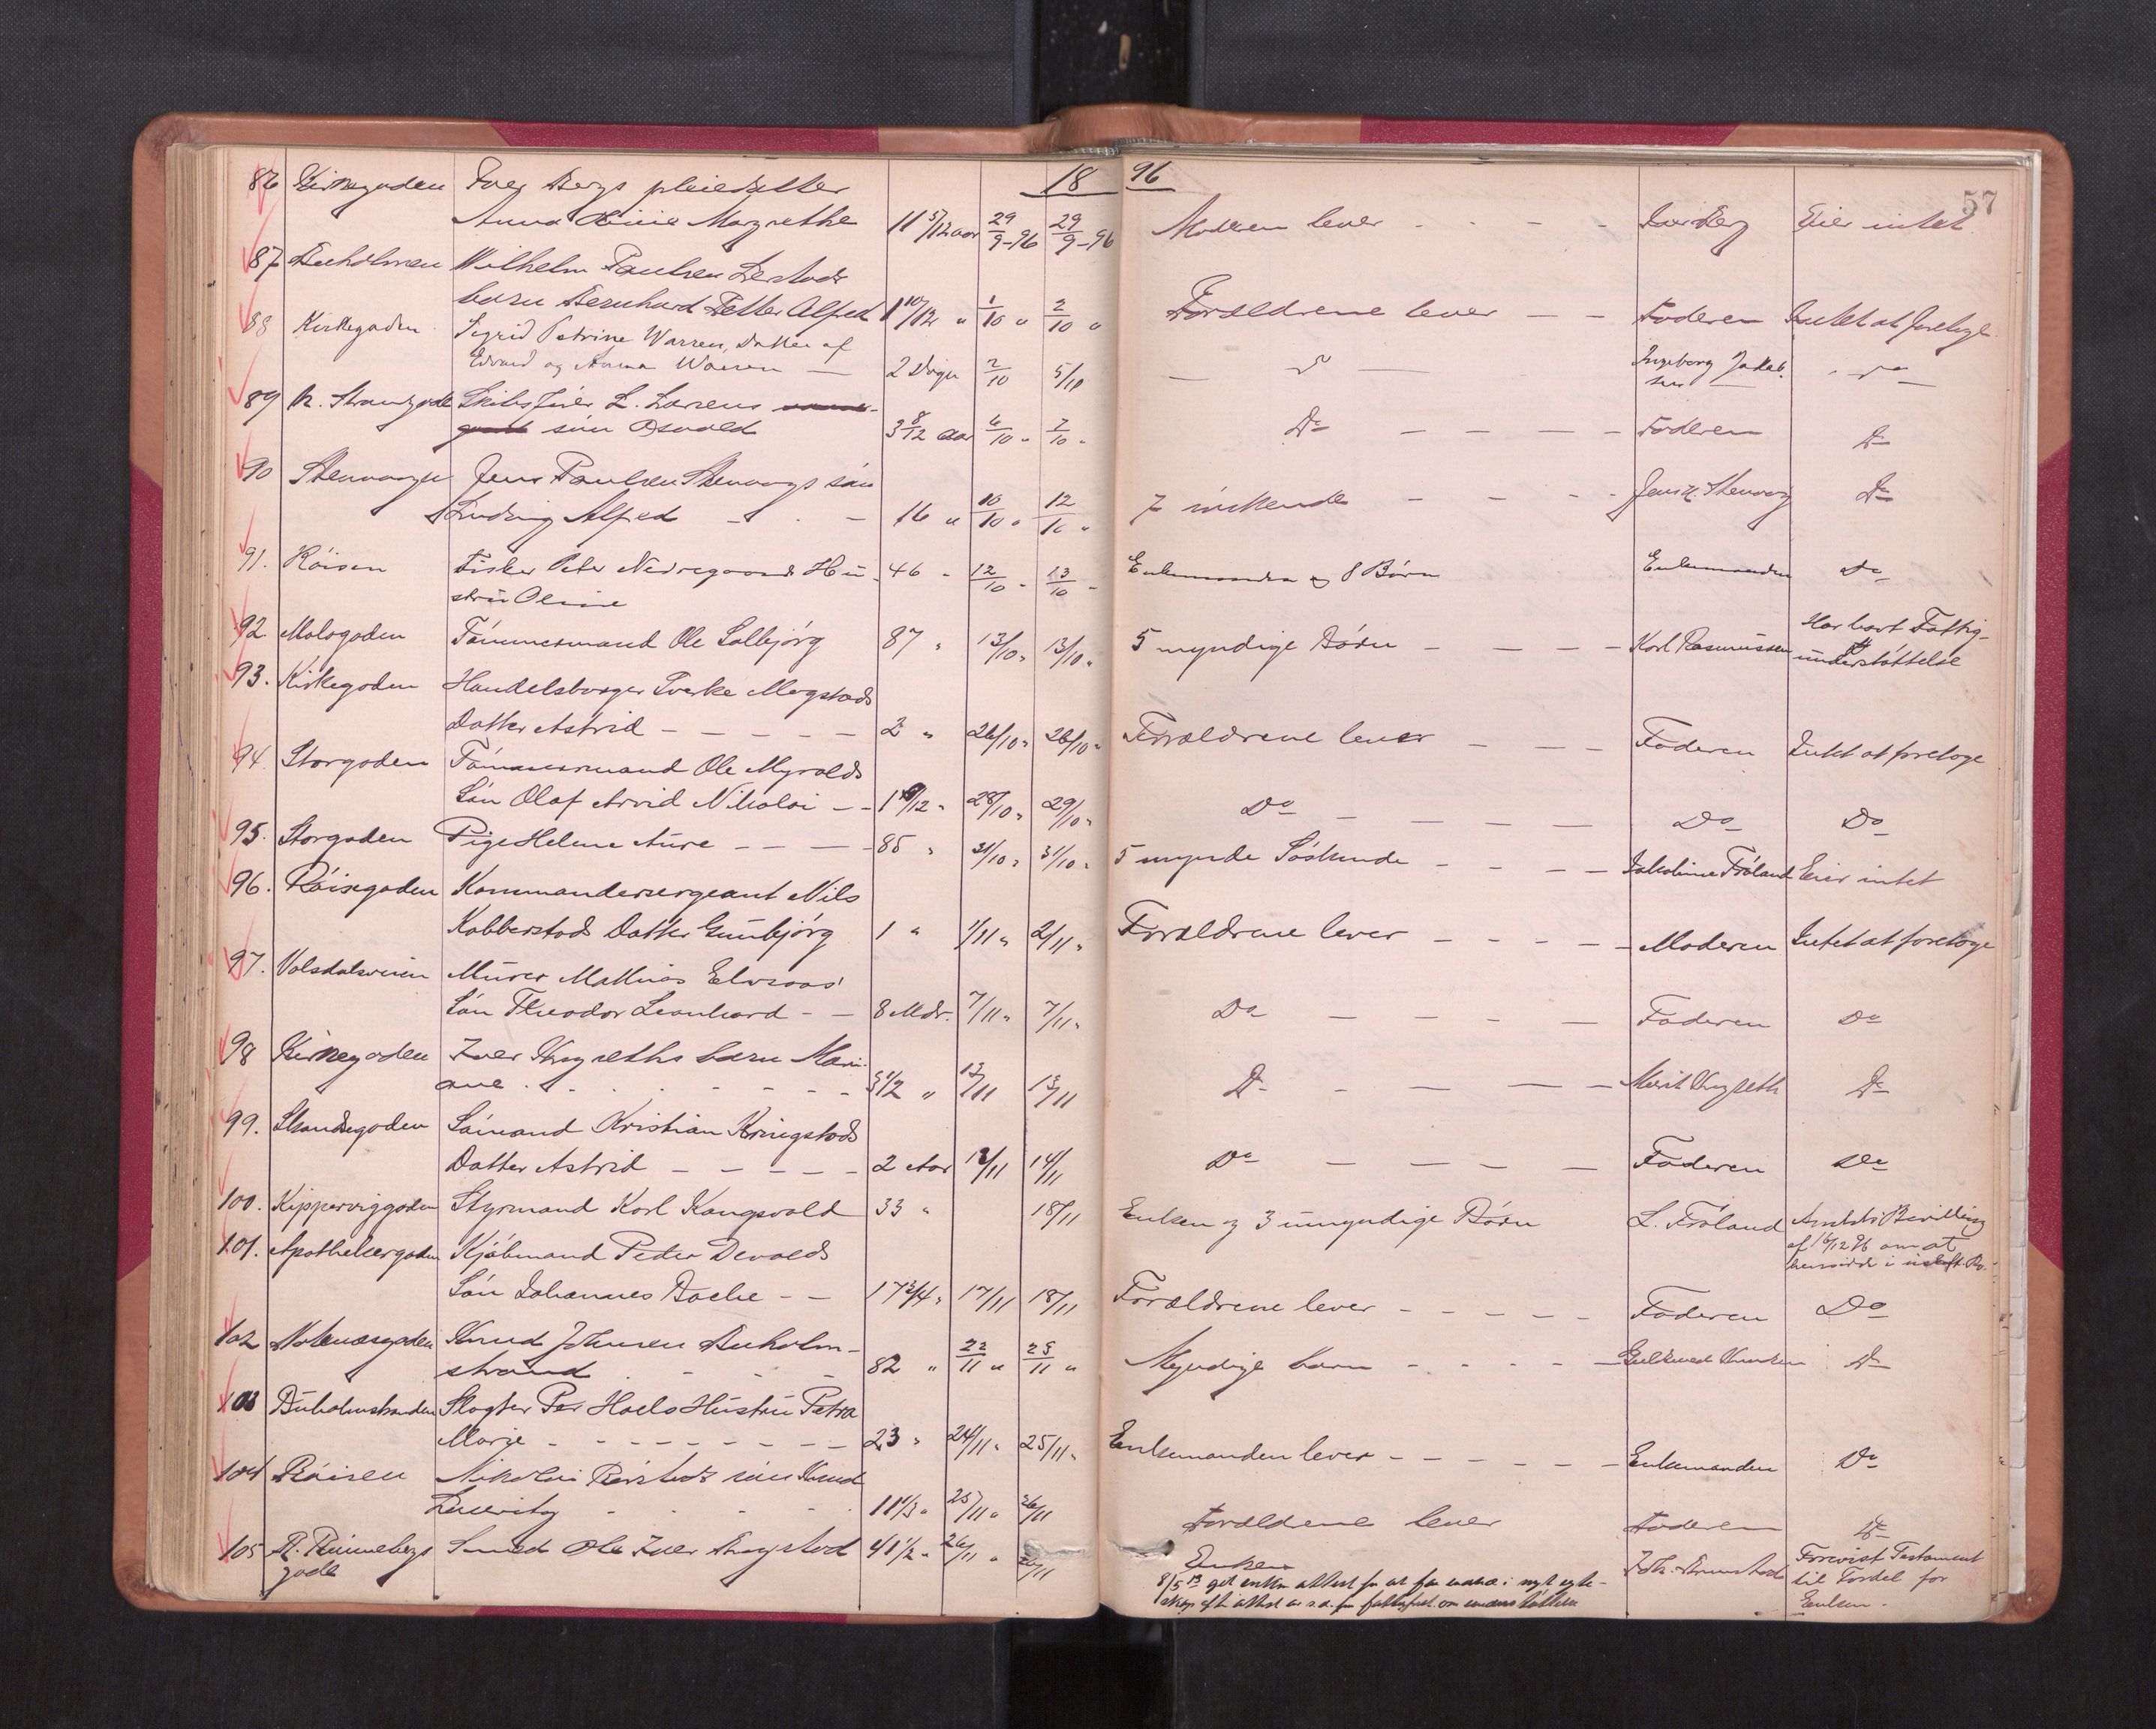 18 96
57
86 Kirkegaden Iver Bergs pleiedatter
Anna Oline Margrethe 11 5/12 aar 29/9-96 29/9-96 Moderen lever - - - Iver Berg Eier intet
87 Buholmen Wilhelm Paulsen
barn Bernhard Petter Alfred 1 10/12 " 1/10 " 2/10 " Forældrene lever - - Faderen Intet at foretage
88 Kirkegaden Sigrid Petrine Warren, Datter af
Edvard og Anna Warren - 2 Dage 2/10 5/10 - Do - Ingeborg Jakob-
sen - Do -
89 N. Strandgade Skibsfører L. Larsens
søn Osvald 3 8/12 aar 6/10 " 7/10 " Do - - - - Faderen Do
90 Stenvaagen Jens Paulsen Stenvaags søn
Ludvig Alfred - - - 16 " 10/10 " 12/10 " 7 søskende - - - Jens P. Stenvaag Do
91. Røisen Fisker Peter Nedregaards Hu- 46 " 12/10 " 13/10 " Enkemanden og 8 Børn Enkemanden Do
stru Oline
92. Mologaden Tømmermand Ole Solbjørg 87 " 13/10 " 13/10 " 5 myndige Børn - - - Karl Rasmussen Har havt Fattig-
understøttelse
93. Kirkegaden Handelsborger Sverke Mogstads
Datter Astrid - - - - - 2 " 26/10 " 26/10 " Forældrene lever - - - Faderen Intet at foretage
94. Storgaden Tømmermand Ole Myrolds
Søn Olaf Arvid Nikolai - - 1 /12 " 28/10 " 29/10 " Do - - - - Do Do
95. Storgaden Pige Helene Aure - - - - 85 " 31/10 " 31/10 " 5 mynde Søskende - - - - Jakobine Frøland Eier intet
96. Røisegaden Kommandersergeant Nils
Kobberstads Datter Gunbjørg 1 " 1/11 " 2/11 " Forældrene lever - - - - Moderen Intet at foretage
97. Volsdalsveien Murer Mathias Elvsaas'
Søn Theodor Leonhard - - 8 Mdr. 7/11 " 7/11 " Do - - - - Faderen Do
98 Kirkegaden Iver barn Mari-
ane - - - - - - 3 1/2 " 12/11 13/11 Do - - - Do
99. Strandgaden Sømand Kristian Kringstads
Datter Astrid - - - - - 2 Aar 12/11 14/11 Do - - - - Faderen Do
100. Kipperviggaden Styrmand Karl Kongsvold 33 " 18/11 Enken og 3 umyndige Børn L. Frøland Amtets Bevilling
af 16/12 96 om at
hensidde i uskift. Bo.
101. Apothekergaden Kjøbmand Peter Devolds
Søn Johannes Bache - - 17 3/4 " 17/11 18/11 Forældrene lever - - - - Faderen Do
102 Notenæsgaden Knud Johnsen Buholm-
strand - - - 82 " 22/11 " 25/11 " Myndige barn - - - - Knutsen Do
103 Buholmstranden Slagter Per Hoels Hustru Petra
Marie - - - - - - - - 23 " 24/11 " 25/11 " Enkemanden lever - - - - - Enkemanden Do
104 Røisen Nikolai Rørstads søn Knud
- - - 11 1/3 " 25/11 " 26/11 Forældrene lever Faderen Do
105 R. Rønnebergs Smed Ole Iver 41 1/2 " 26/11 " 26/11 Enken Forevist Testament
gade til Fordel for
Enken.
8/5 13 git enken attest for at indtræ i nyt egte-
skap